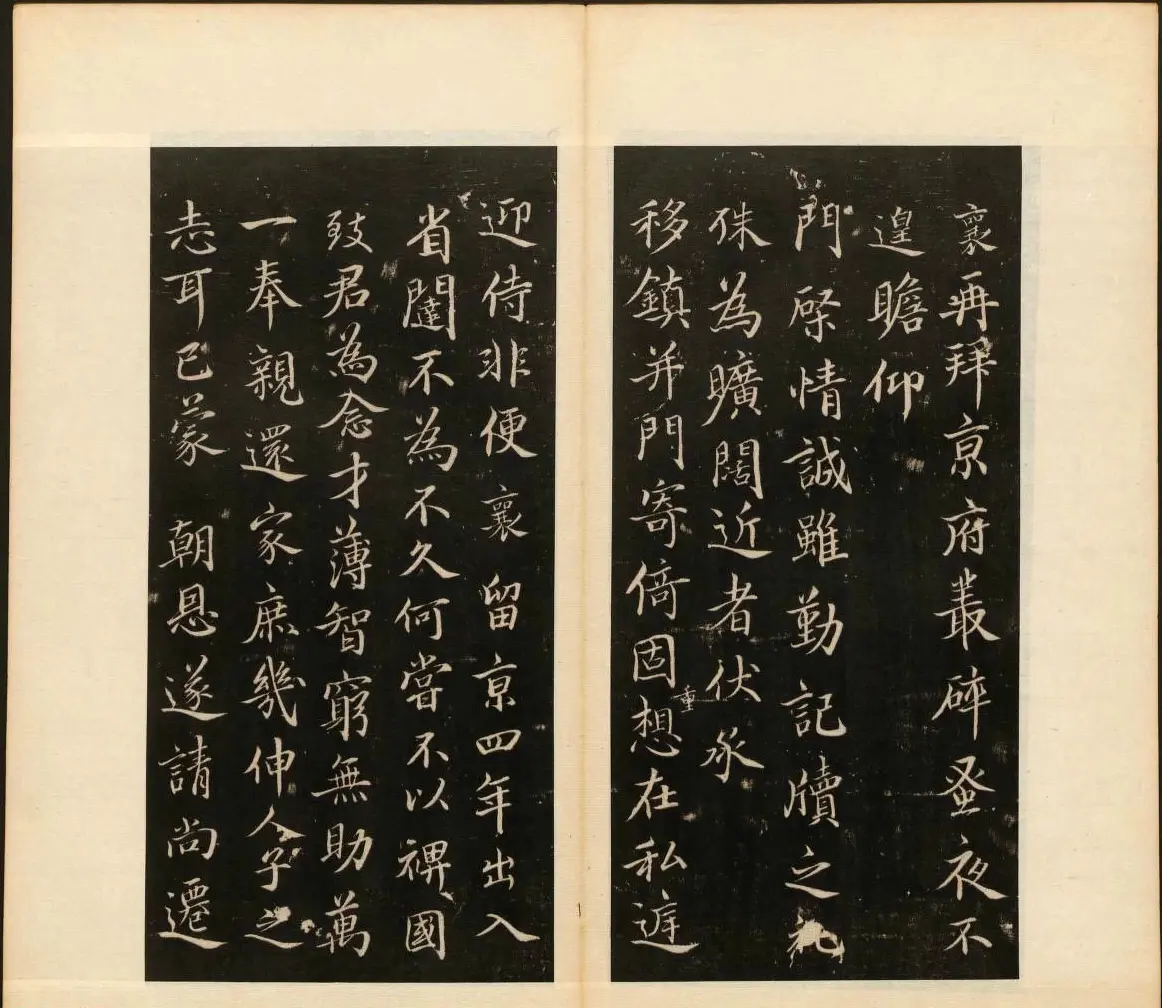 襄再拜京府叢碎蚤夜不
遑瞻仰
門棨情誠雖勤記牘之礼
殊為曠闊近者伏承
移鎮并門寄倚固重想在私
迎侍非便襄留京四年出入
省闥不為不久何嘗不以裨國
致君為念才薄智窮無助萬
一奉親還家庶幾伸人子之
志耳已蒙 朝恩遂請尚遷